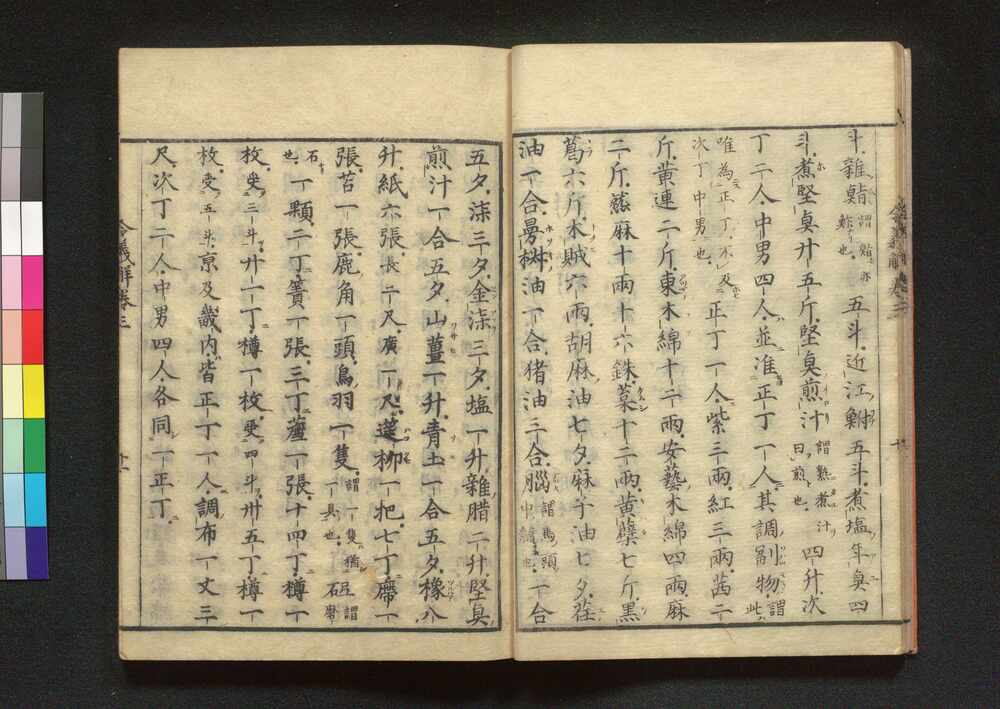 斗。雜鮨 謂鮨亦鮓也。 五斗。近江鮒五斗。煮塩年魚四
斗。煮堅魚廿五斤。堅魚煎汁 謂熟煮汁曰煎也。 四升。次
丁二人。中男四人。並准正丁一人。其調副物 謂此
唯為正丁。不及次丁中男也。 正丁一人。紫三兩。紅三兩。茜二
斤。黄連二斤。東木綿十二兩。安藝木綿四兩。麻
二斤。熟麻十兩十六銖。菜十二兩。黄蘗七斤。黒
葛六斤。木賊六兩。胡麻油七夕。麻子油七夕。荏
油一合。曼椒油一合。猪油三合。脳 謂馬頭中髄也。 一合
五夕。漆三夕。金漆三夕。塩一升。雜腊二升。堅魚
煎汁一合五夕。山薑一升。青土一合五夕。橡八
升。紙六張。長二尺。廣一尺。筥柳一把。七丁席一
張。苫一張。鹿角一頭。鳥羽一隻。 謂一隻猶一具也。 砥 謂石磨
也。 一顆。二丁簀一張。三丁薦一張。十四丁樽一
枚。受三斗。廿一丁樽一枚。受四斗。卅五丁樽一
枚。受五斗。京及畿内。皆正丁一人。調布一丈三
尺。次丁二人。中男四人。各同一正丁。
令義解卷三